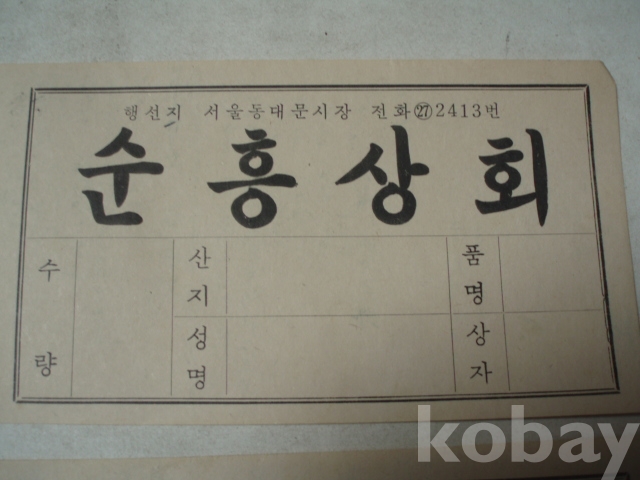 행선지 서울동대문시장 전화㉗2413번
순흥상회
수량
산지
품명
성명
상자
kobay